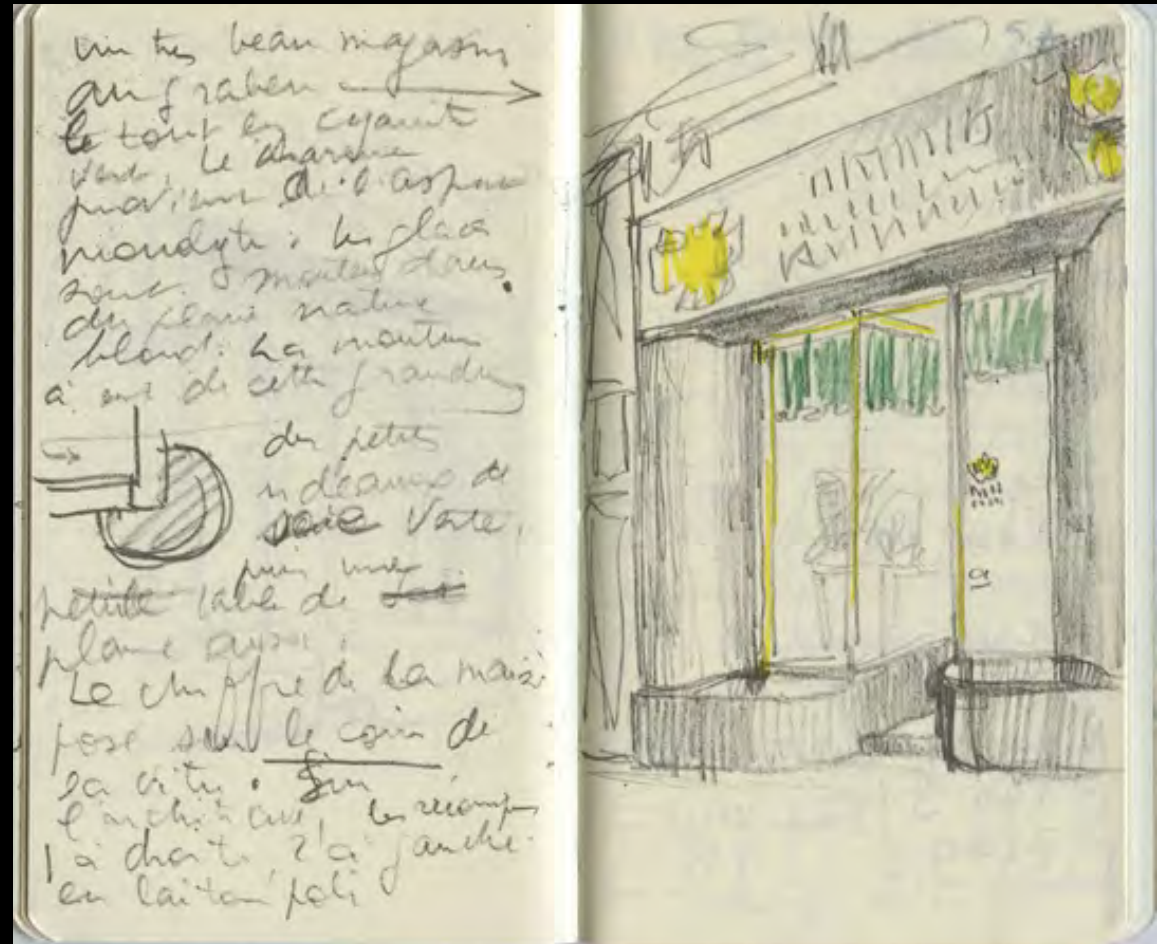 un très beau magasin
au graben
le tout en cyanite
verte, le charme
provient de l'aspect
monolyte : les glaces
sont montées dans
du plane nature
blond. La monture
à      de cette grandeur
des petits
rideaux de
soie verte.
puis une
petite table de
plane aussi.
Le chiffre de la maison
posé sur le coin de
la vitre. Sur
l'architrave, les récompenses
1 à droite, 2 à gauche.
en laiton poli